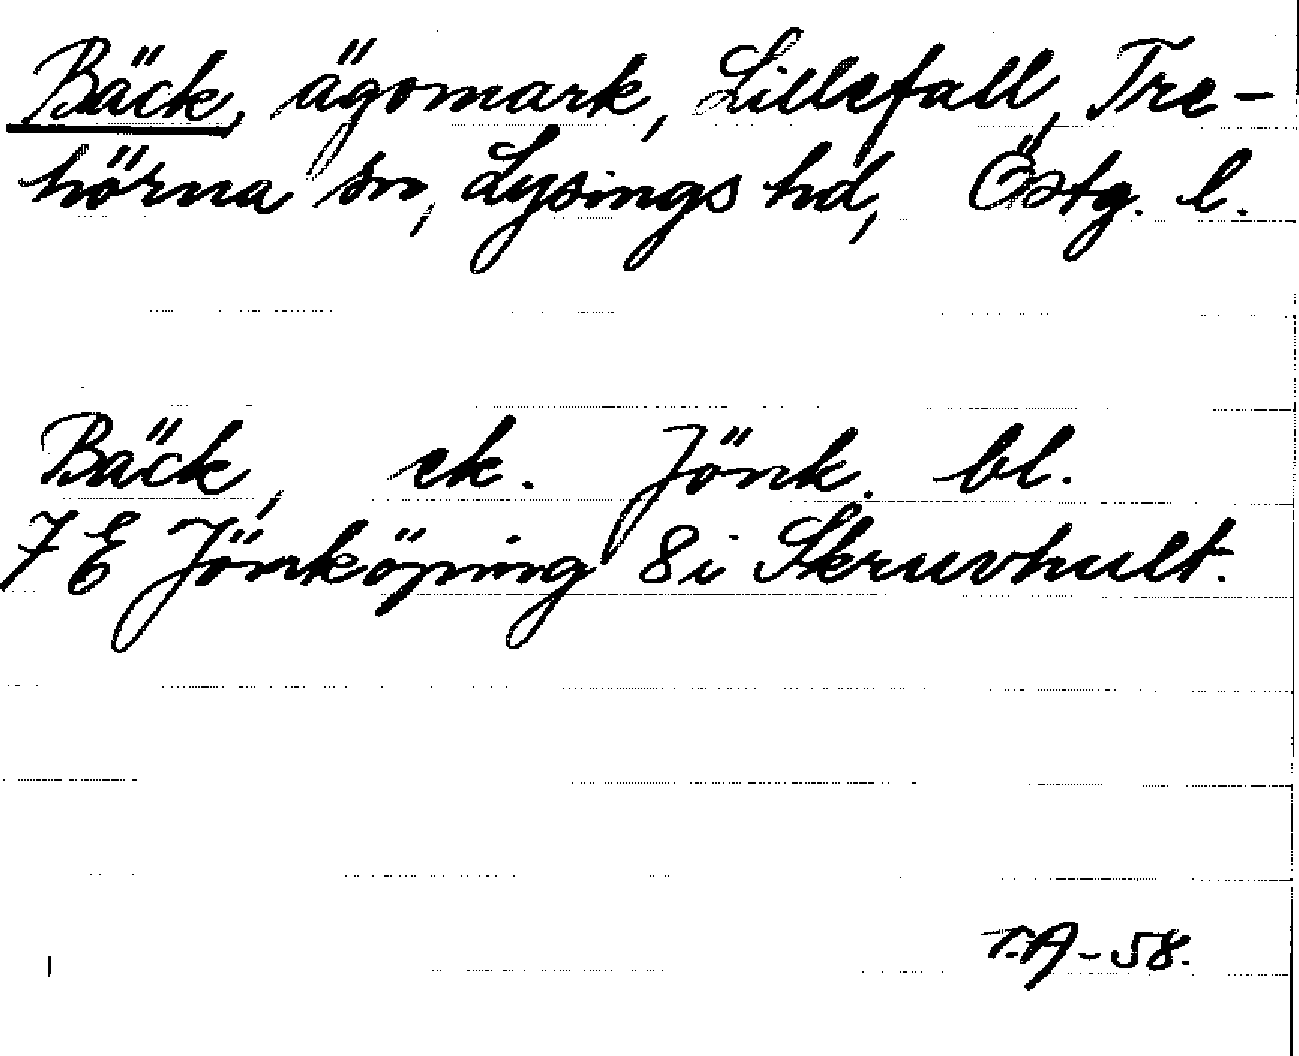 Bäck, ägomark, Lillefall, Tre-
hörna sn, Lysings hd, Östg. l.
Bäck, ek. Jönk. bl.
7 E Jönköping 8i Skruvhult.
T.A-58.